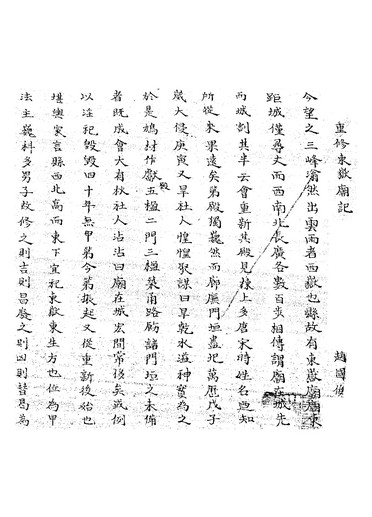 重修東嶽廟記
趙國俊
今望之三峰滃然出雲雨者西嶽也縣故有東嶽廟廟東
距城僅尋丈而西南北長廣各數百步相傳謂廟在城先
而城割其半云會重新其殿見棟上多唐宋時姓名迺知
所從來果遠矣第殿獨巍然而廊廡門垣盡圮萬曆戊子
歲大侵庚寅又旱社人惶惶聚謀曰旱乾水溢神實為之
於是鳩材作獻殿五楹二門三楹葺甬路勵諸門垣之未備
者既成會大有秋社人沾沾曰廟在城宏閎常後矣或例
以淫祀毀毀四十年無甲第今第振起又從重新後始也
堪輿家言縣西北高而東下宜祀東嶽東生方也位為甲
法主巍科多男子故修之則吉則昌廢之則凶則替曷為